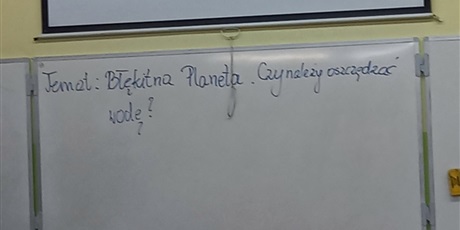 Temat: Błękitna Planeta. Czy należy oszczędzać
wodę?
?